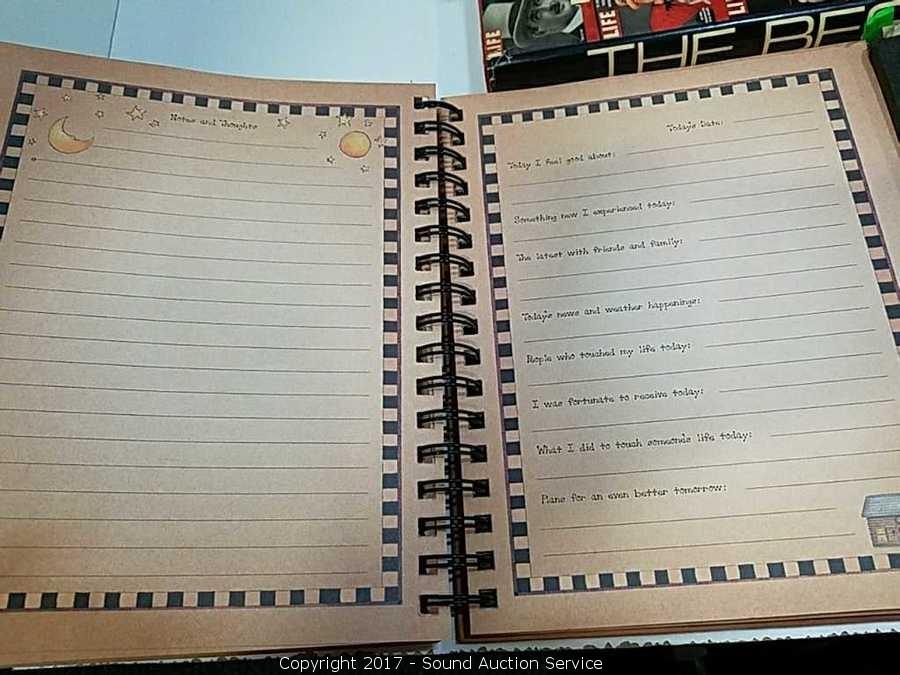 LIFE
LIFE
LIFE
THE BES
Notes and Thoughts
Today's Date:
Today I feel good about:
Something new I experienced today:
The latest with friends and family:
Today's news and weather happenings:
People who touched my life today:
I was fortunate to receive today:
What I did to touch someone's life today:
Plans for an even better tomorrow:
Copyright 2017 - Sound Auction Service